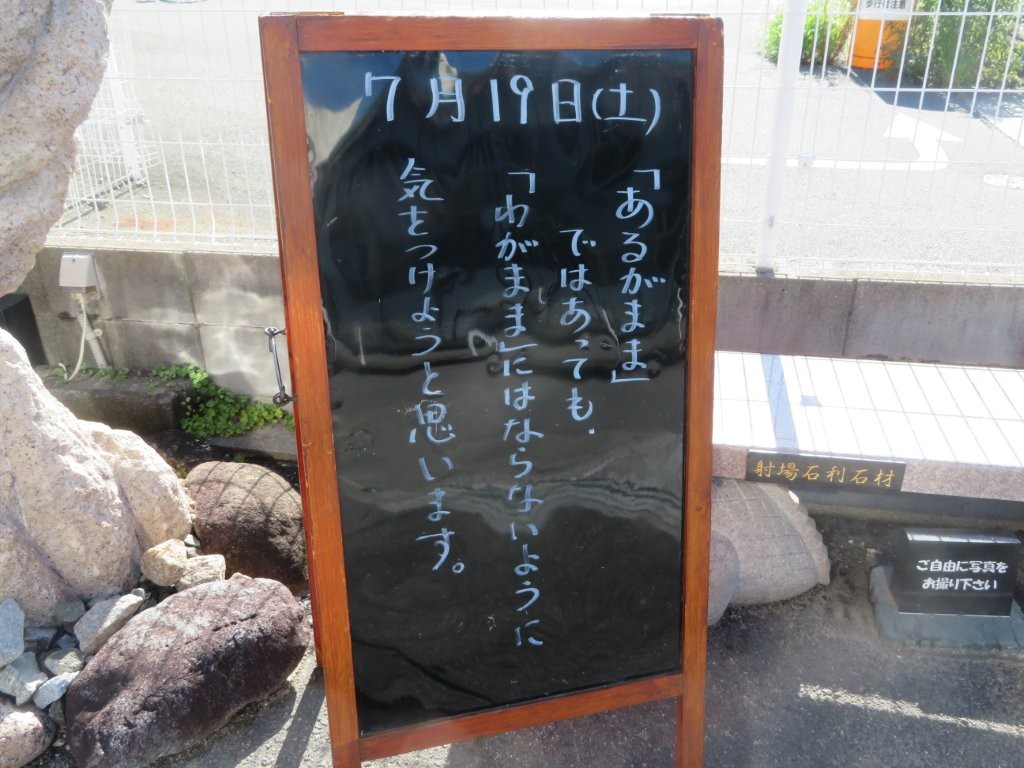 7月19日(土)
「あるがまま」
ではあっても、
「わがまま」にはならないように
気をつけようと思います。
歩行注意
射場石利石材
ご自由に写真を
お撮り下さい